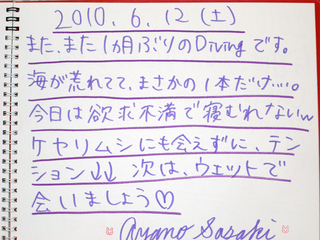 2010.6.12(土)
また、また1ヵ月ぶりのDivingです。
海が荒れてて、まさかの1本だけ…。
今日は欲求不満で寝むれないw
ケヤリムシにも会えずに、テン
ション↓↓ 次は、ウェットで
会いましょう♡
Ayano Sasaki